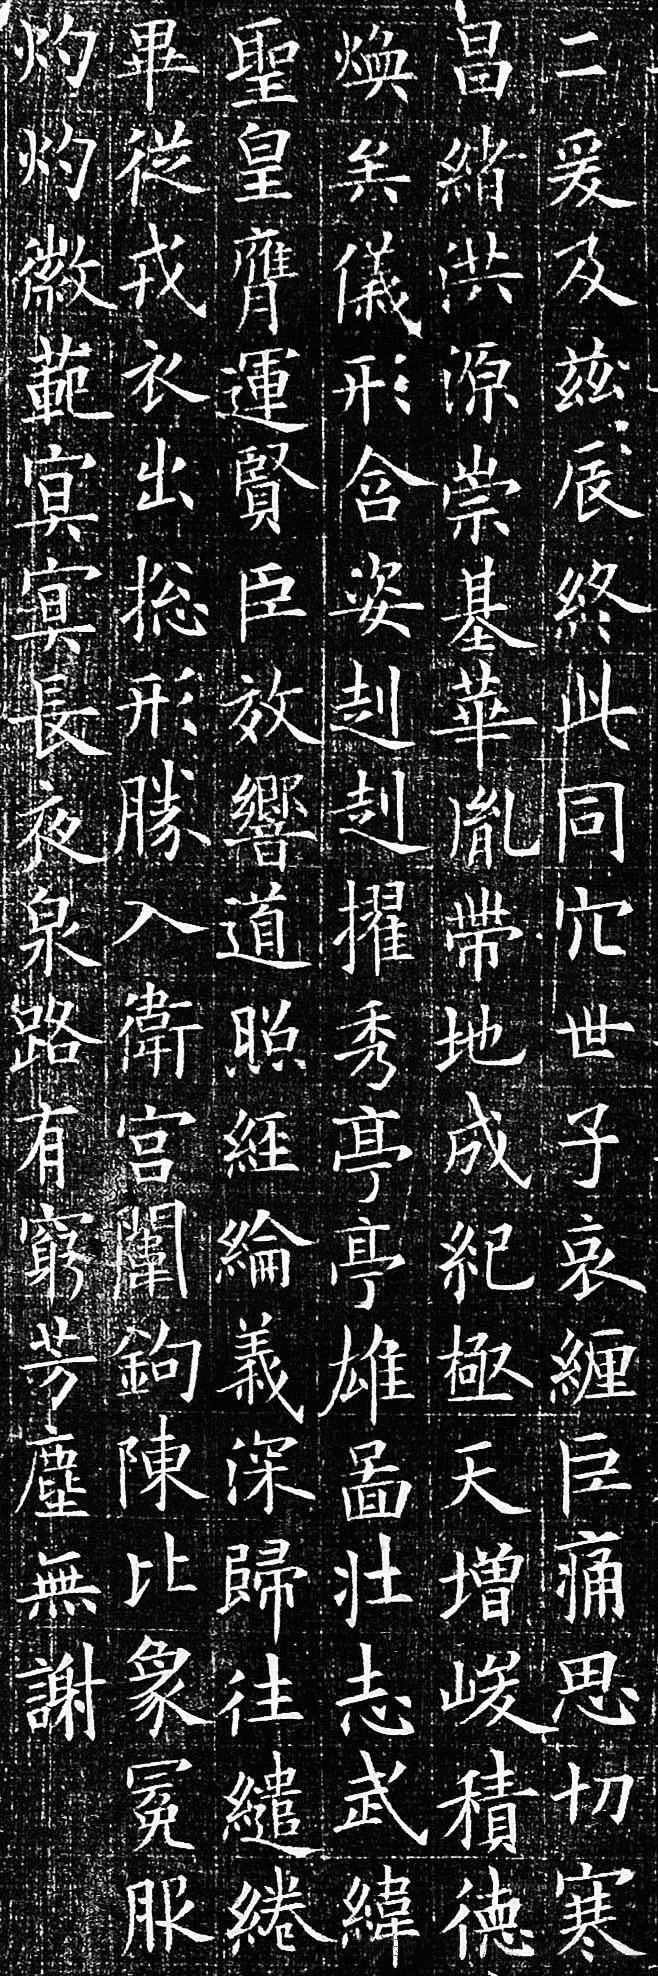 二爰及茲辰終此同穴世子哀纏臣痛思切寒
昌緒洪源崇基華胤帶地成紀極天增峻積德
煥矣儀形含姿赳赳擢秀亭亭雄啚壯志武緯
聖皇膺運賢臣效響道照經綸義深歸往繾綣
畢從戎衣出捴形勝入衛宮闈鉤陳比象冕服
灼灼徽範寘寘長夜泉路有窮芳塵無謝